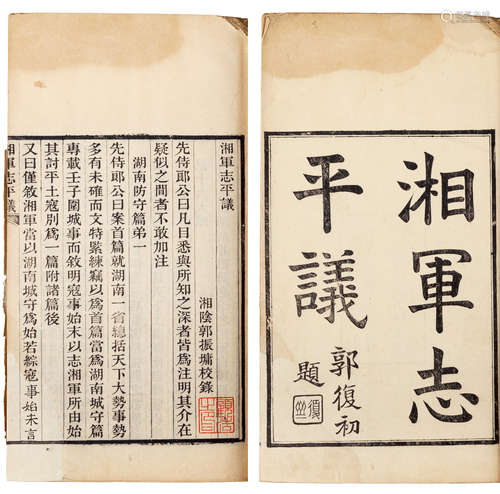 湘軍志
平議
郭復初
題
湘軍志平議
湘陰郭振墉校錄
先侍郎公曰凡目悉與所知之深者皆爲注明其介在
疑似之間者不敢加注
湖南防守篇弟一
先侍郎公曰案首篇就湖南一省總括天下大勢事勢
多有未確而文特緊練竊以爲首篇當爲湖南城守篇
專載壬子圍城事而敘明寇事始末以志湘軍所由始
其討平土寇別爲一篇附諸篇後
又曰僅敘湘軍當以湖南城守爲始若綜寇事始末言
湘軍志平議